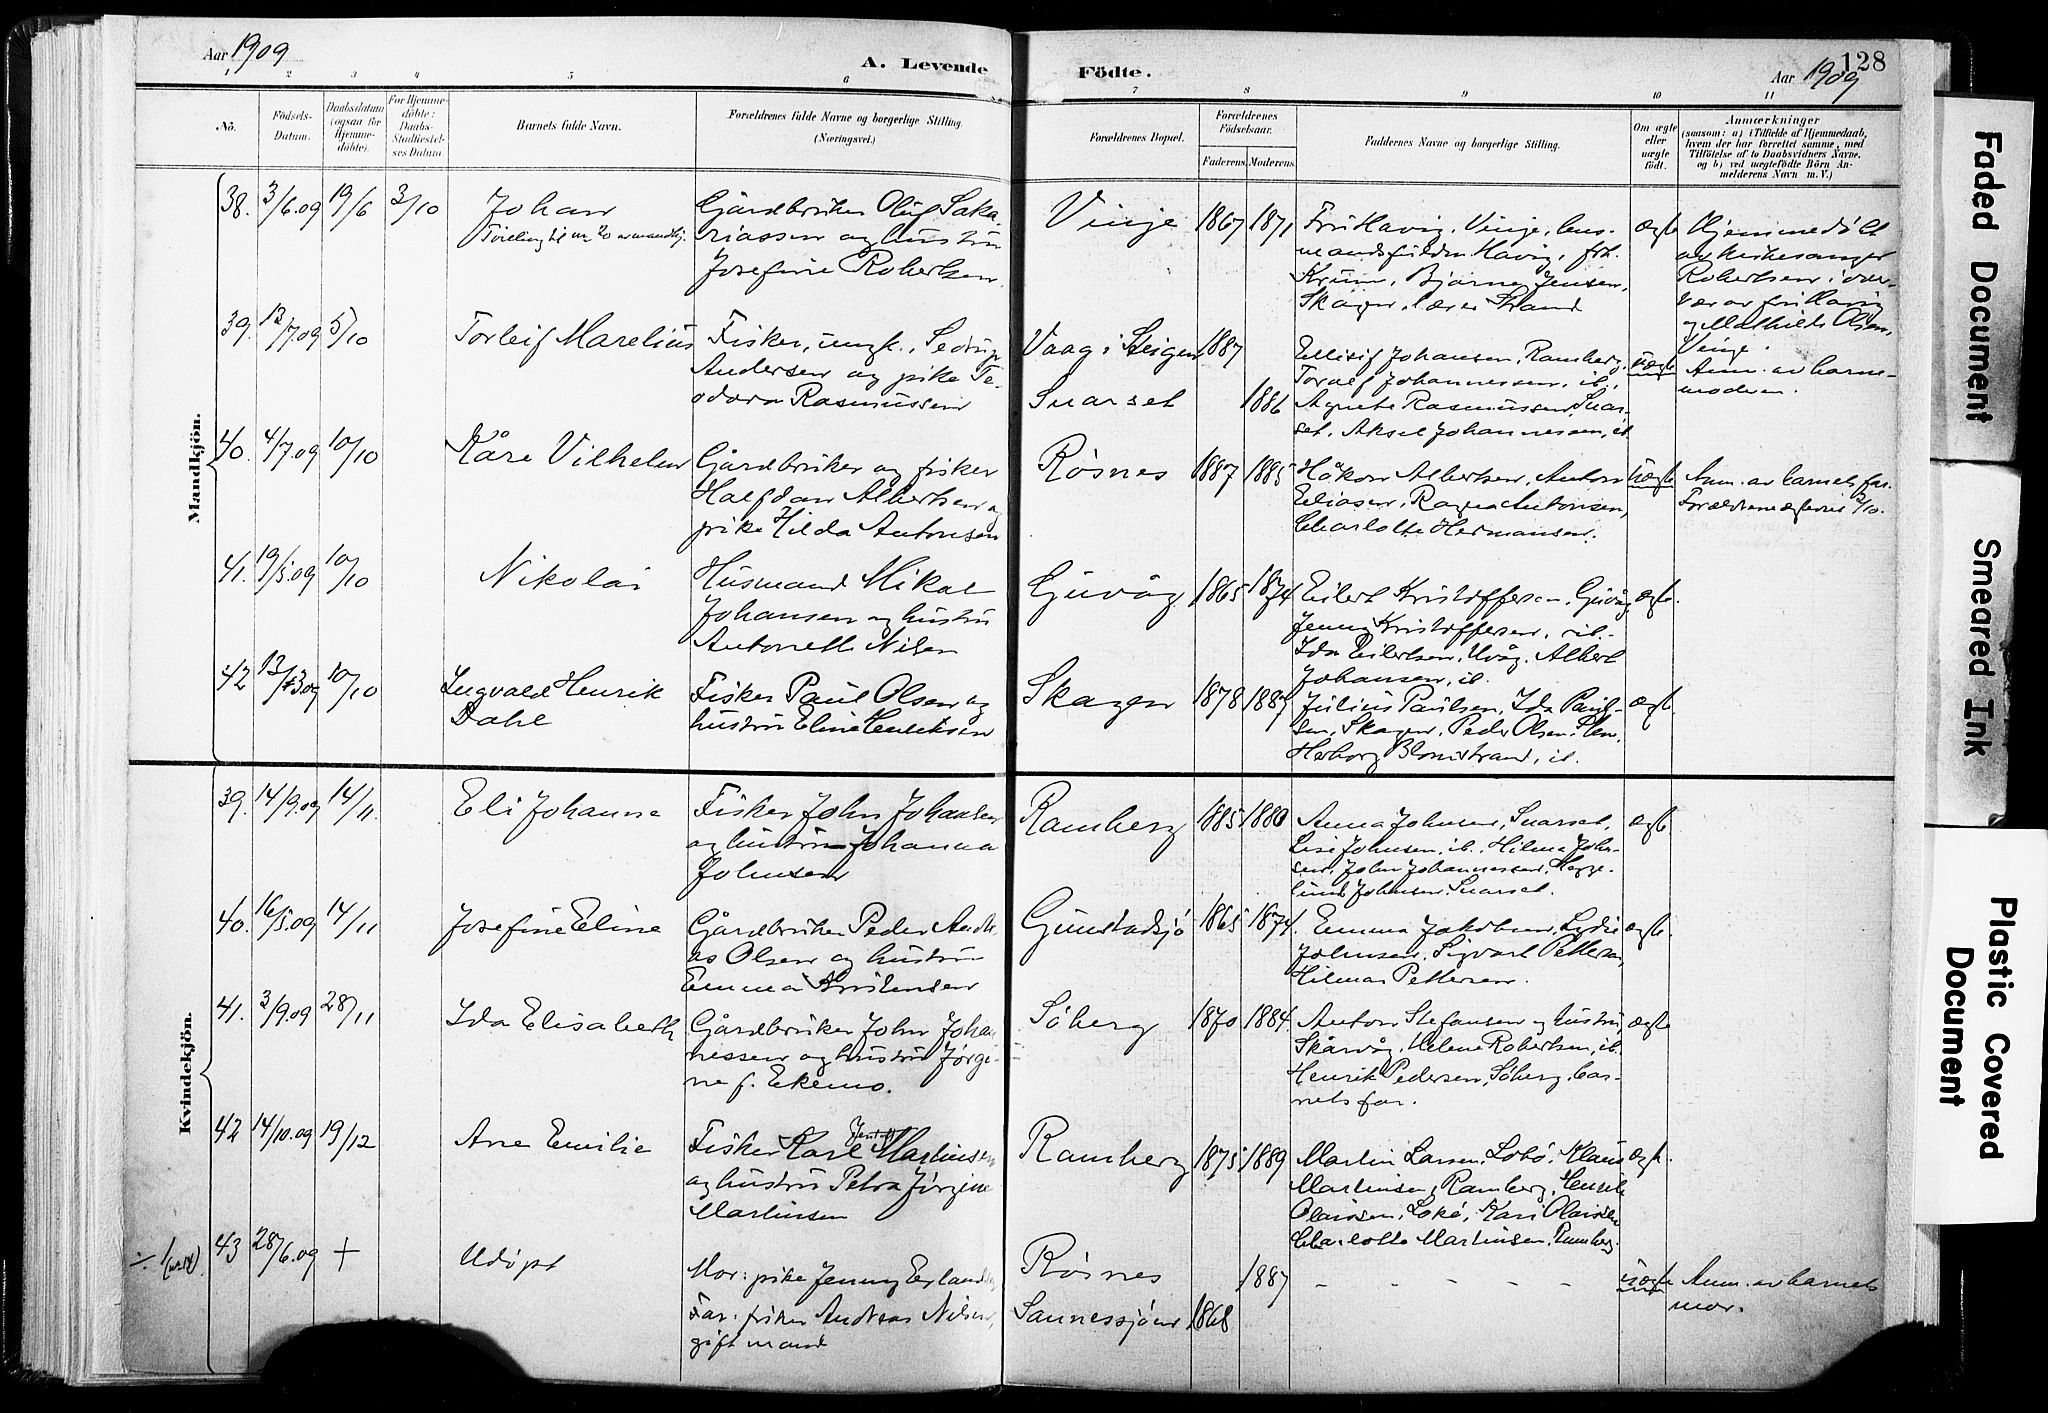 Aar 1909
A. Levende
Födte.
Aar 1909
128
1 2 3 4 5 6 7 8 9 10 11
No.
Födsels-
Datum.
Daabsdatum
(ogsaa for
Hjemme-
döbte).
For Hjemme-
döbte:
Daabs-
Stadfæstel-
ses Datum
Barnets fulde Navn.
Forældrenes fulde Navne og borgerlige Stilling.
(Næringsvei.)
Forældrenes Bopæl.
Forældrenes
Födselsaar.
Faderens. Moderens.
Faddernes Navne og borgerlige Stilling.
Om ægte
eller
uægte
födt.
Anmærkninger
(saasom: a) i Tilfælde af Hjemmedaab,
hvem der har forrettet samme, med
Tilföielse af to Daabsvidners Navne,
og b) ved uægtefödte Börn An-
melderens Navn m. V.)
Mandkjön.
38. 3/6.09 19/6 3/10
Johan
Tvilling til no 20 av mandkj.
Gårdbruker Oluf Saka-
riassen og hustru
Josefine Robertsen.
Vinje 1867 1871
Fru Havig, Vinje, lens-
mandsfuldm. Havig, frk.
Krum, Bjarne Jensen,
Skagen, lærer Strand
ægte
Hjemmedøbt
av kirkesanger
Robertsen i over-
vær av fru Havig
og Mathilde Olsen,
Vinje.
39. 13/7.09 5/10
Torleif Marelius
Fisker, ungk., Sedrup
Andersen og pike Te-
odora Rasmussen
Vaag i Steigen 1887
Suarset 1886
Ellisif Johansen, Ramberg,
Toralf Johannessen, ib.,
Agnete Rasmussen, Suar-
set, Aksel Johannessen, ib.
uægte
Anm. av barne-
moderen.
40. 4/7.09 10/10
Kåre Vilhelm
Gårdbruker og fisker
Halfdan Albertsen og
pike Hilda Antonsen
Røsnes 1887 1885
Håkon Albertsen, Anton
Eliasen, Ragna Antonsen,
Charlotte Hermansen.
uægte
Anm. av barnets far.
Forældrene egteviet /10.
41. 19/5.09 10/10
Nikolai
Husmand Mikal
Johansen og hustru
Antonette Nilsen
Guvåg 1865 1874
Eilert Kristoffersen, Guvåg,
Jenny Kristoffersen, ib.
Ida Eilertsen, Uvåg. Albert
Johansen, ib.
ægte.
42 13/3.09 10/10
Ingvald Henrik
Dahl
Fisker Paul Olsen og
hustru Eline Henriksen
Skagen 1878 1887
Julius Paulsen, Ida Paul-
sen, Skagen, Peder Olsen,
Herborg Blomstrand, ib.
ægte
Kvindekjön.
39. 14/9.09 14/11
Eli Johanna
Fisker John Johansen
og hustru Johanna
Johnsen
Ramberg 1885 1880
Anna Johnsen, Suarset,
Lise Johnsen, ib., Hilma John-
sen, John Johannessen, Hegge-
lund Johnsen, Suarset.
ægte
40. 16/5.09 14/11
Josefine Eline
Gårdbruker Peder Andre-
as Olsen og hustru
Emma Kristensen
Gunstadsjø 1865 1874.
Emma Jakobsen, Lydie
Johnsen, Sigvart Pettersen,
Hilmar Pettersen.
ægte.
41. 3/9.09 28/11
Ida Elisabeth
Gårdbruker John Joha-
nessen og hustru Jørgi-
ne f. Ekemo.
Søberg 1870 1884.
Anton Stefansen og hustru,
Skårvåg, Helene Robertsen, ib.
Henrik Pedersen, Søberg, bar-
nets far.
ægte
42 14/10.09 19/12
Ane Emilie
Fisker Karl Jentoft Martinsen
og hustru Petra Jørgine
Martinsen
Ramberg 1875 1889
Martin Larsen, Lokø, Klaus
Martinsen, Ramberg, Henrik
Olaissen, Lokø, Kari Olaissen
Charlotte Martinsen, Ramberg.
ægte.
÷ 1
43 28/6.09 +
Udøpt
Mor: pike Jenny Erlandsen
Far: fisker Andreas Nilsen,
gift mand
Røsnes 1887
Sannessjøen 1868
- - - - -
uægte
Anm. av barnets
mor.
Faded Document
Smeared Ink
Plastic Covered
Document